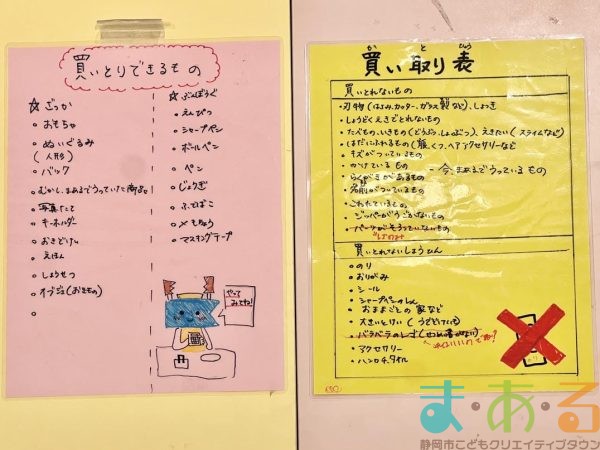 買いとりできるもの
☆ざっか
・おもちゃ
・ぬいぐるみ
(人形)
・バック
・むかし、まあるでうっていた商品
・写真たて
・キーホルダー
・おきどけい
・えほん
・しょうせつ
・オブジェ(おきもの)
☆ぶんぼうぐ
・えんぴつ
・シャープペン
・ボールペン
・ペン
・じょうぎ
・ふでばこ
・メモちょう
・マスキングテープ
やって
みてね!
か と ひょう
買い取り表
買いとれないもの
・刃物(はさみ、カッター、ガラス製など)、しょっき
・しょうどくえきでとれないもの
・たべもの、いきもの(どうぶつ、しょくぶつ)、えきたい(スライムなど)
・はだにふれるもの(服、くつ、ヘアアクセサリーなど)
・キズがついているもの
・かけているもの
・今、まあるでうっているもの
・らくがきがあるもの
・名前がついているもの
・こわれているもの
・ジッパーがうごかないもの
・パーツがそろっていないもの
買いとれないしょうひん
・のり
・おりがみ
・シール
・シャープペンのしん
・おままごとの家など
・大きいとけい(うでどけいも)
・バラバラのレゴ
・アクセサリー
・ハンカチ、タオル
ま・あ・る
静岡市こどもクリエイティブタウン